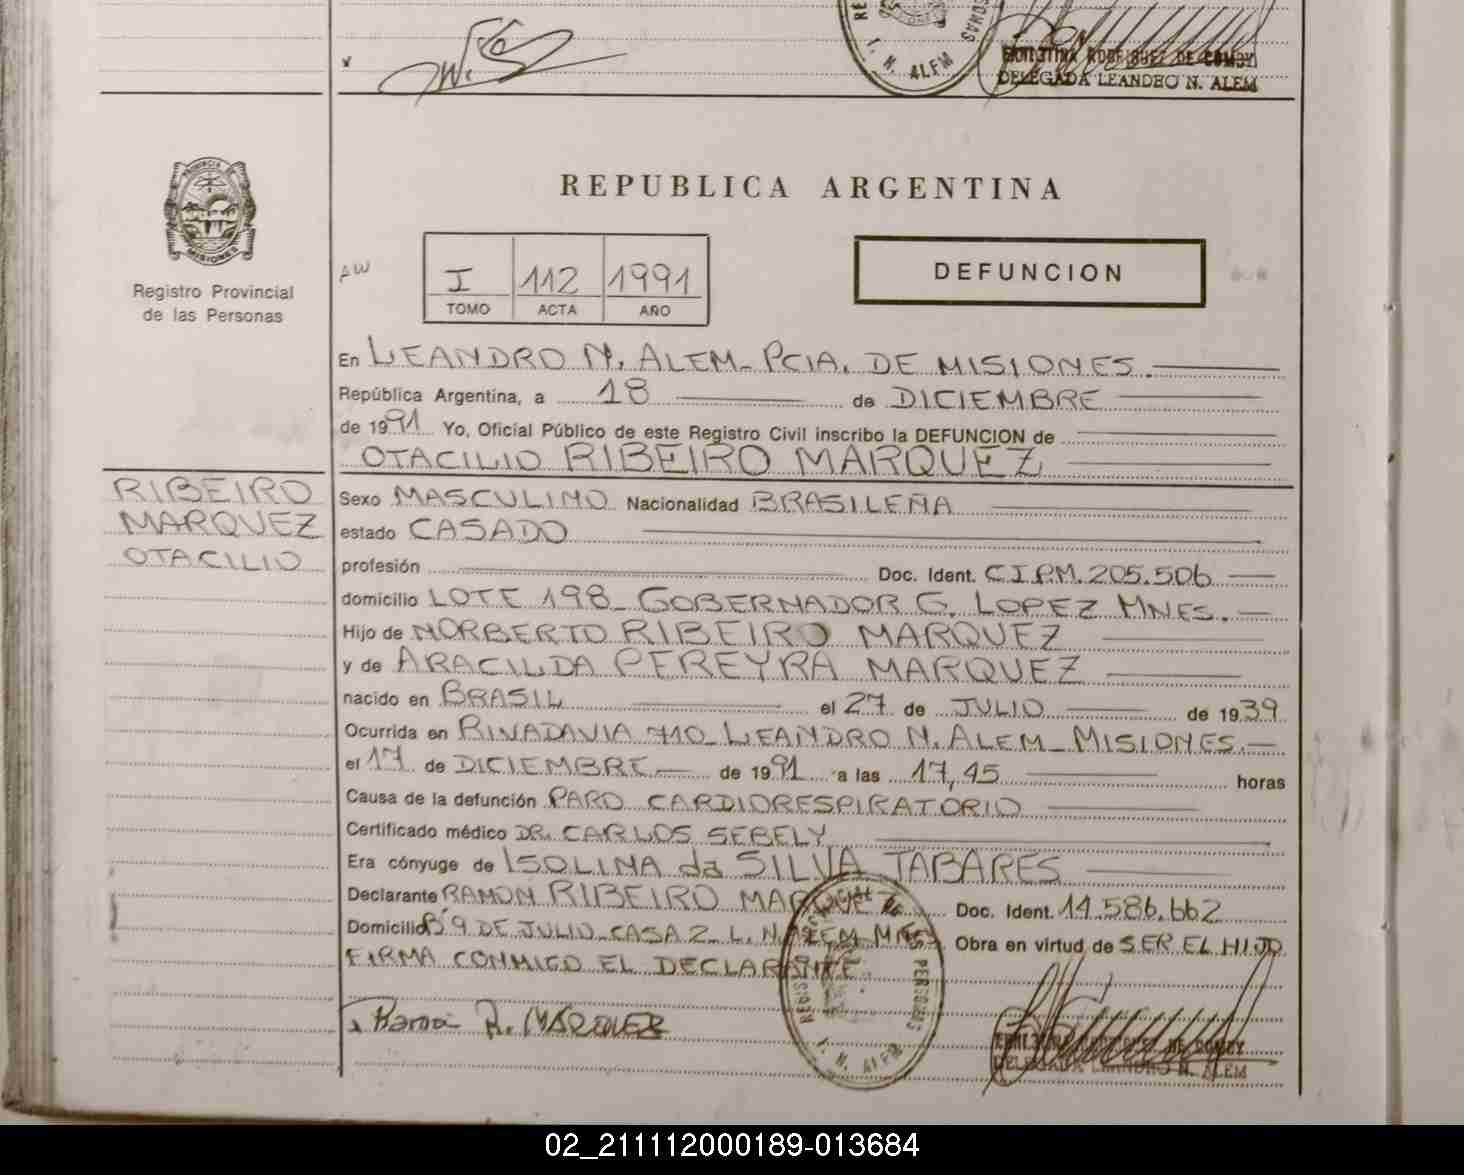 I. N. ALEM
DELEGADA LEANDRO N. ALEM
PROVINCIA DE
MISIONES
Registro Provincial
de las Personas
REPUBLICA ARGENTINA
I 112 1991
TOMO ACTA AÑO
DEFUNCION
En LEANDRO N. ALEM - PCIA. DE MISIONES.
República Argentina, a 18 de DICIEMBRE
de 1991 Yo, Oficial Público de este Registro Civil inscribo la DEFUNCION de
OTACILIO RIBEIRO MARQUEZ
RIBEIRO
MARQUEZ
OTACILIO
Sexo MASCULINO Nacionalidad BRASILEÑA
estado CASADO
profesión Doc. Ident. C.I.P.M. 205.506
domicilio LOTE 198 - GOBERNADOR G. LOPEZ MNES.
Hijo de NORBERTO RIBEIRO MARQUEZ
y de ARACILDA PEREYRA MARQUEZ
nacido en BRASIL el 27 de JULIO de 1939
Ocurrida en RIVADAVIA 710 - LEANDRO N. ALEM - MISIONES.
el 17 de DICIEMBRE de 1991 a las 17,45 horas
Causa de la defunción PARO CARDIORESPIRATORIO
Certificado médico DR. CARLOS SEBELY
Era cónyuge de ISOLINA da SILVA TABARES
Declarante RAMON RIBEIRO MARQUEZ Doc. Ident. 14.586.662
Domicilio Bº 9 DE JULIO - CASA 2 - L. N. ALEM MNES Obra en virtud de SER EL HIJO
FIRMA CONMIGO EL DECLARANTE
R. MARQUEZ
I. N. ALEM
DELEGADA LEANDRO N. ALEM
02_211112000189-013684